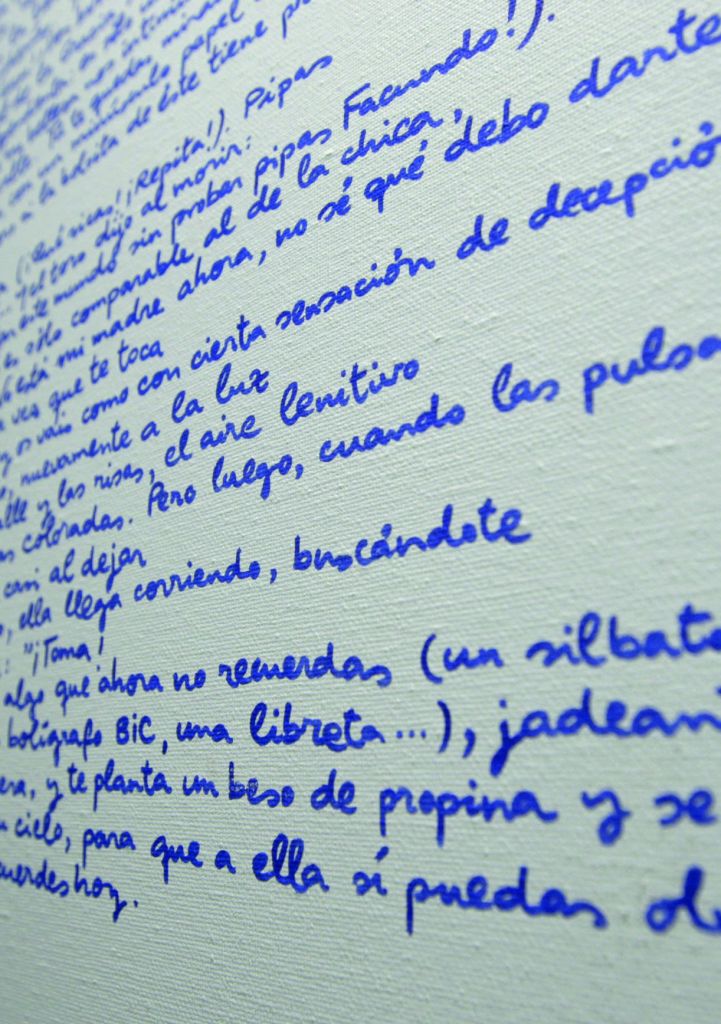 minúsculo papel
a la bolsita de éste tiene
(¡Qué ricas! ¡Repita!). Pipas
... Y el toro dijo al morir:
en este mundo sin probar pipas Facundo!).
es sólo comparable al de la chica,
está mi madre ahora, no sé qué debo darte
vez que te toca
y os vais como con cierta sensación de decepció
nuevamente a la luz
alle y las risas, el aire lenitivo
as coloradas. Pero luego, cuando las pulsa
casi al dejar
, ella llega corriendo, buscándote
: "¡Toma!
algo que ahora no recuerdas (un silbato
bolígrafo BiC, una libreta...), jadean
era, y te planta un beso de propina y se
cielo, para que a ella sí puedas ol
uerdes hoy.